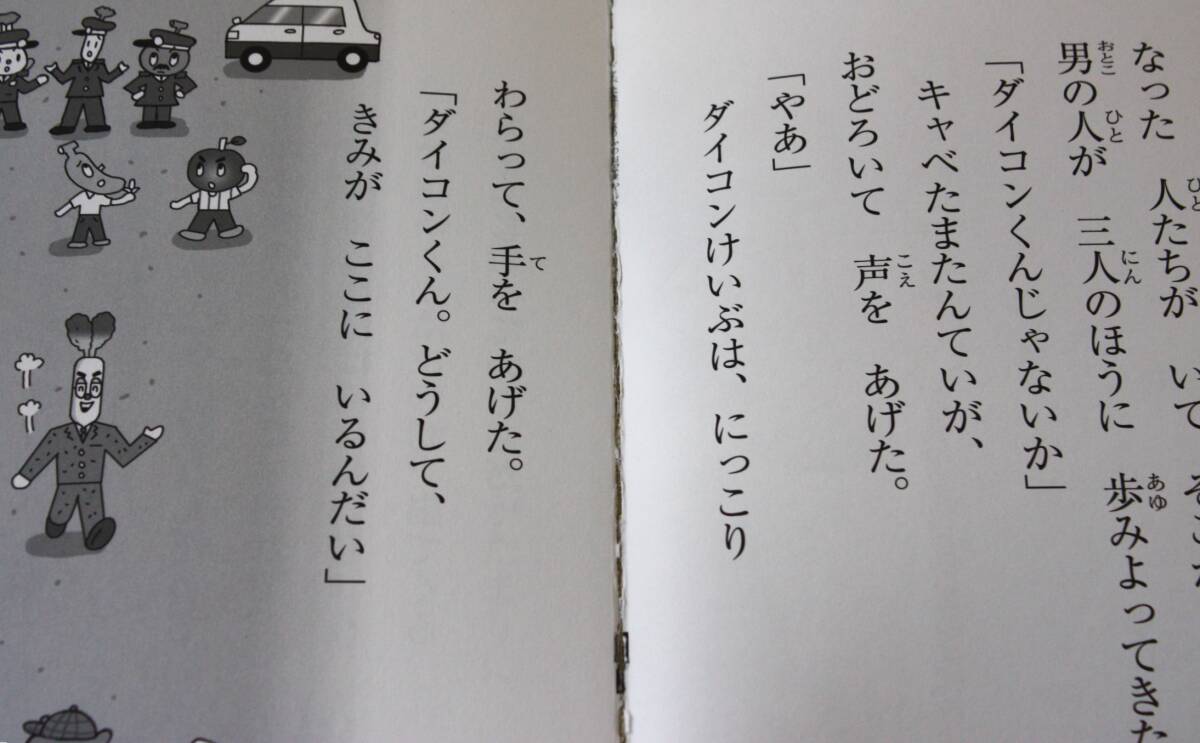 なった　人たちが　いて
男の人が　三人のほうに　歩みよってきた
「ダイコンくんじゃないか」
キャベたまたんていが、
おどろいて　声を　あげた。
「やあ」
ダイコンけいぶは、にっこり
わらって、手を　あげた。
「ダイコンくん。どうして、
きみが　ここに　いるんだい」